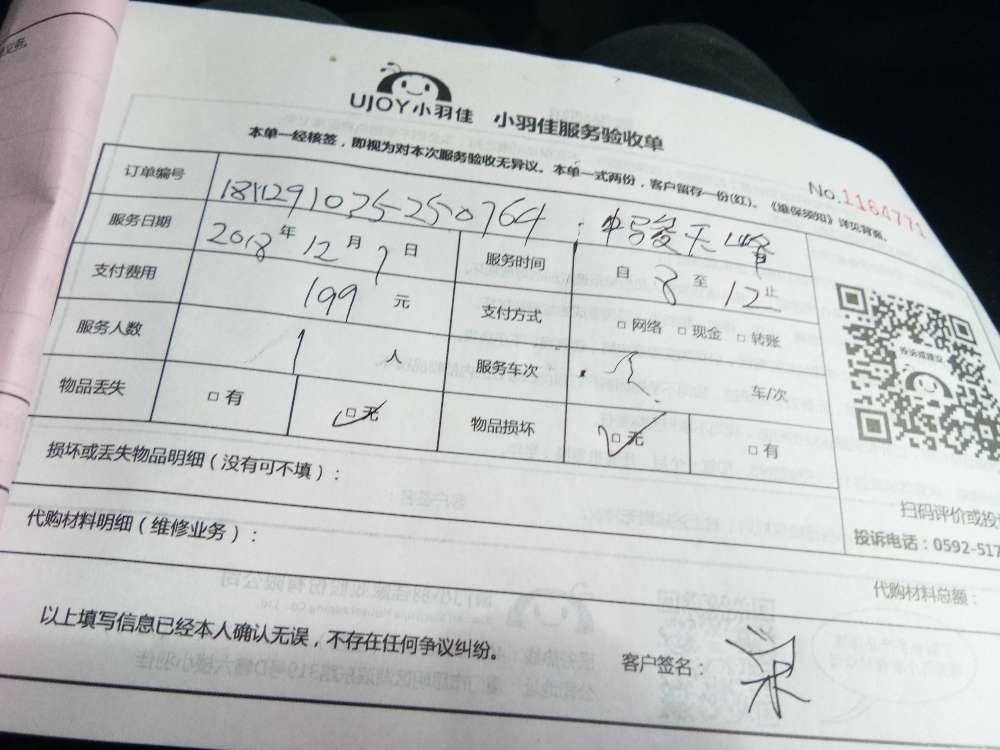 UJOY小羽佳 小羽佳服务验收单
本单一经核签，即视为对本次服务验收无异议。本单一式两份，客户留存一份(红)。《维保须知》详见背面。
No.1164771
订单编号 1811291035250764
服务日期 2018年12月1日 服务时间 自8至12止
支付费用 199元 支付方式 □网络 □现金 □转账
服务人数 1人 服务车次 车/次
物品丢失 □有 □无 物品损坏 □无 □有
损坏或丢失物品明细（没有可不填）：
代购材料明细（维修业务）：
投诉或建议
扫码评价或投
投诉电话：0592-517
代购材料总额：
以上填写信息已经本人确认无误，不存在任何争议纠纷。
客户签名：